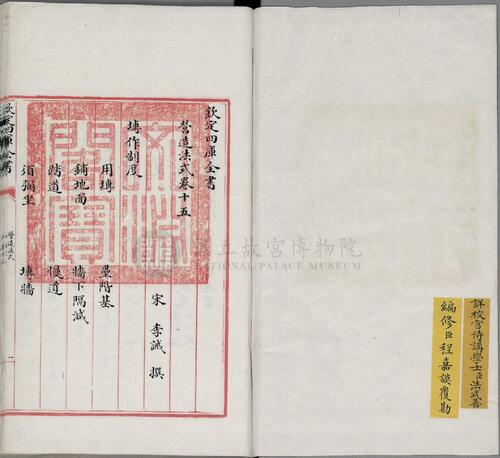 詳校官侍講學士臣法式善
編修臣程嘉謨覆勘
欽定四庫全書
營造法式卷十五
宋 李誡 撰
塼作制度
用塼 壘階基
鋪地面 牆下隔減
踏道 慢道
須彌坐 塼牆
欽定四庫全書
營造法式
文淵閣寶
國立故宮博物院
NATIONAL PALACE MUSEUM